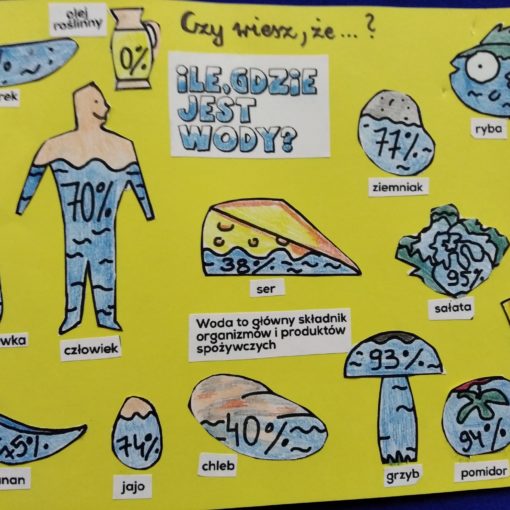 Czy wiesz, że...?
olej
roślinny
0%
ILE, GDZIE
JEST
WODY?
77%
ziemniak
ryba
70%
człowiek
38%
ser
95%
sałata
Woda to główny składnik
organizmów i produktów
spożywczych
74%
jajo
40%
chleb
93%
grzyb
94%
pomidor